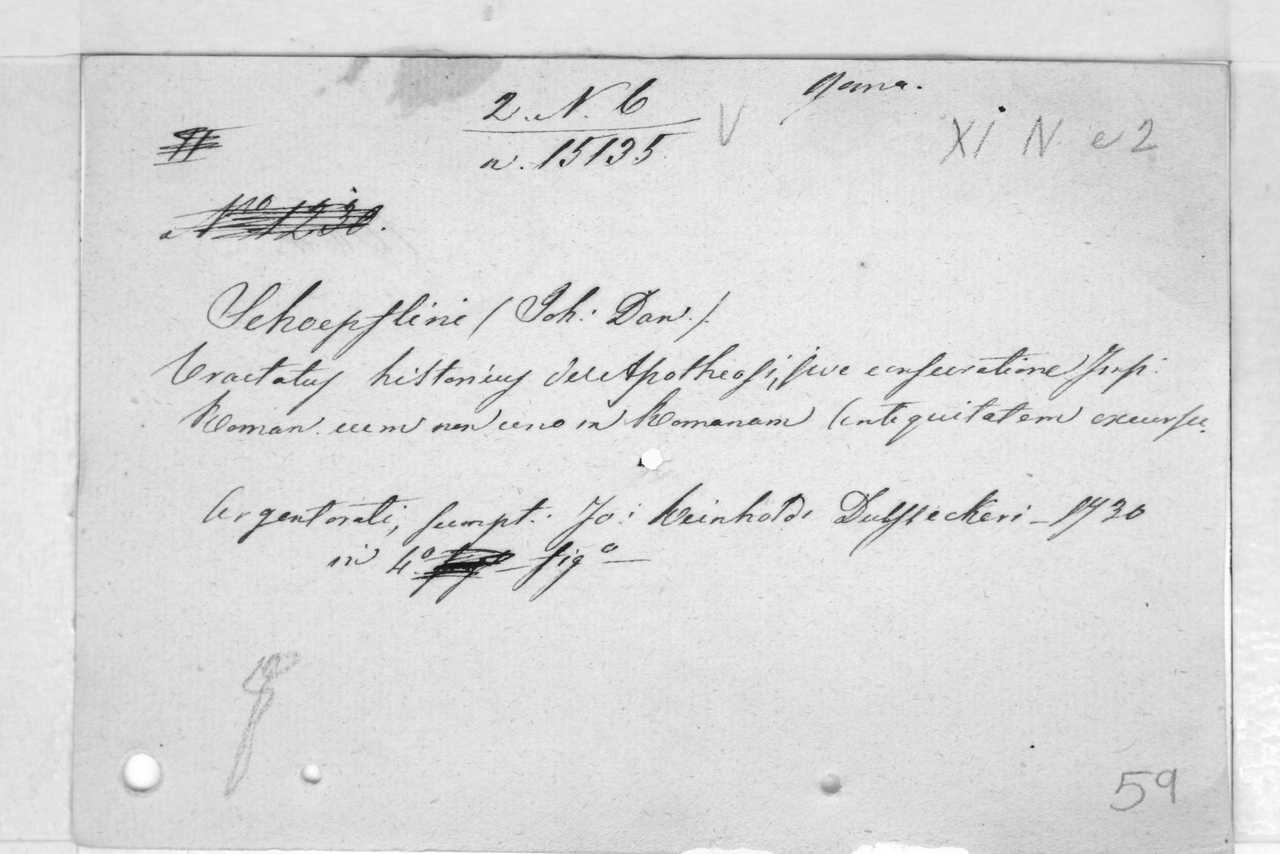 2. N. 6
a. 15135
V
XI N e 2
No 1230.
Schoepflini (Joh: Dan.)
Tractatus historicus de Apotheosi, sive consecratione Imp:
Roman. cum non uno in Romanam Antiquitatem excursu.
Argentorati, sumpt: Jo: Reinholdi Dulsseckeri - 1730
in 4o - figo -
59